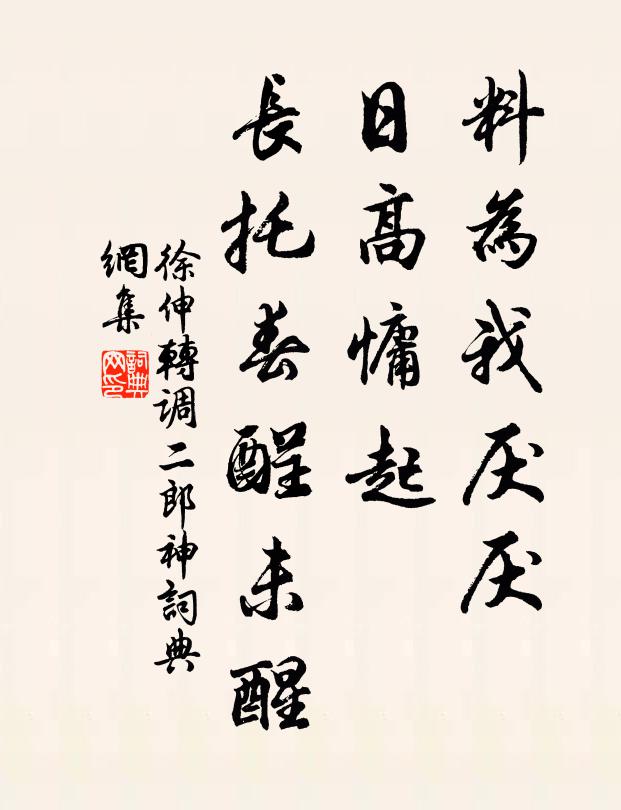 料為我厌厌
日高慵起
長托春酲未醒
徐伸轉调二郎神詞典
網集
詞典
网印